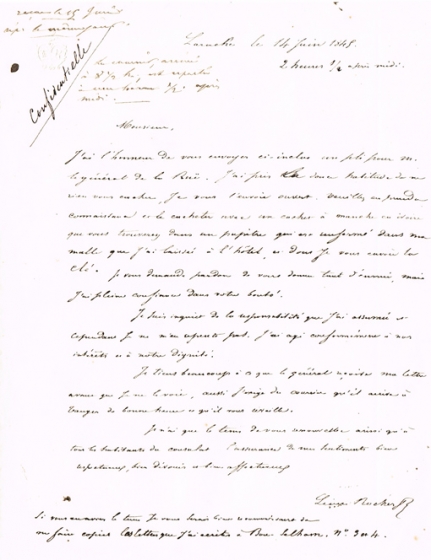 Larache le 14 Juin 1845.
2 heures 1/2 après midi.
Confidentielle
le courrier arrivé
à 8 1/2 h, est reparti
à une heure 1/2 après
midi.
Monsieur,
J'ai l'honneur de vous envoyer ci-inclus un pli pour m.
le général de la Rüe. J'ai pris la douce habitude de ne
rien vous cacher. Je vous l'envoie ouvert. Veuillez en prendre
connaissance et le cacheter avec son cachet à manche en ivoire
que vous trouverez dans un pupitre qui est renfermé dans ma
malle que j'ai laissée à l'hôtel, et dont je vous envoie la
clé. Je vous demande pardon de vous donner tant d'ennui, mais
j'ai pleine confiance dans votre bonté.
Je suis inquiet de la responsabilité que j'ai assumée et
cependant Je ne m'en repents pas. J'ai agi conformément à nos
intérêts et à notre dignité.
Je tiens beaucoup à ce que le général reçoive ma lettre
avant que je ne le voie, aussi j'exige du courrier qu'il arrive à
Tanger de bonne heure et qu'il vous éveille.
Je n'ai que le tems de vous renouveller ainsi qu'à
tous les habitants du consulat l'assurance de mes sentiments bien
respectueux, bien dévoués et bien affectueux
Léon Roches
Si vous en avez le tems Je vous serais bien reconnaissant de
me faire copier la lettre que j'ai écrite à Bou Selham. N° 304.